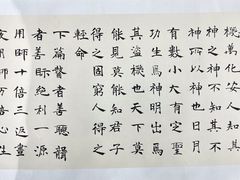 機萬化安人知其
神而神不知其不
神所以神也日月
有數小大有定聖
功生焉神明出焉
其盜機也天下莫
能見莫能知君子
得之固窮小人得之
輕命
下篇瞽者善聽聾
者善眂絕利一源
用師十倍三返晝
夜用師萬倍心生